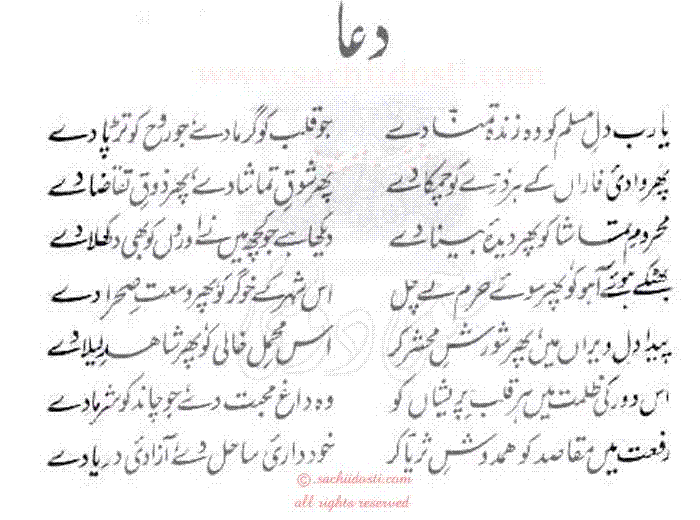 دعا
www.sachiidosti.com
یارب دلِ مسلم کو وہ زندہ تمنا دے جو قلب کو گرما دے، جو روح کو تڑپا دے
پھر وادیٔ فاراں کے ہر ذرے کو چمکا دے پھر شوقِ تماشا دے، پھر ذوقِ تقاضا دے
محرومِ تماشا کو پھر دیدۂ بینا دے دیکھا ہے جو کچھ میں نے اوروں کو بھی دکھلا دے
بھٹکے ہوئے آہو کو پھر سوئے حرم لے چل اس شہر کے خوگر کو پھر وسعتِ صحرا دے
پیدا دلِ ویراں میں پھر شورشِ محشر کر اس محملِ خالی کو پھر شاہدِ لیلا دے
اس دور کی ظلمت میں ہر قلبِ پریشاں کو وہ داغِ محبت دے جو چاند کو شرما دے
رفعت میں مقاصد کو ہمدوشِ ثریا کر خودداریٔ ساحل دے، آزادیٔ دریا دے
© .sachiidosti.com
all rights reserved